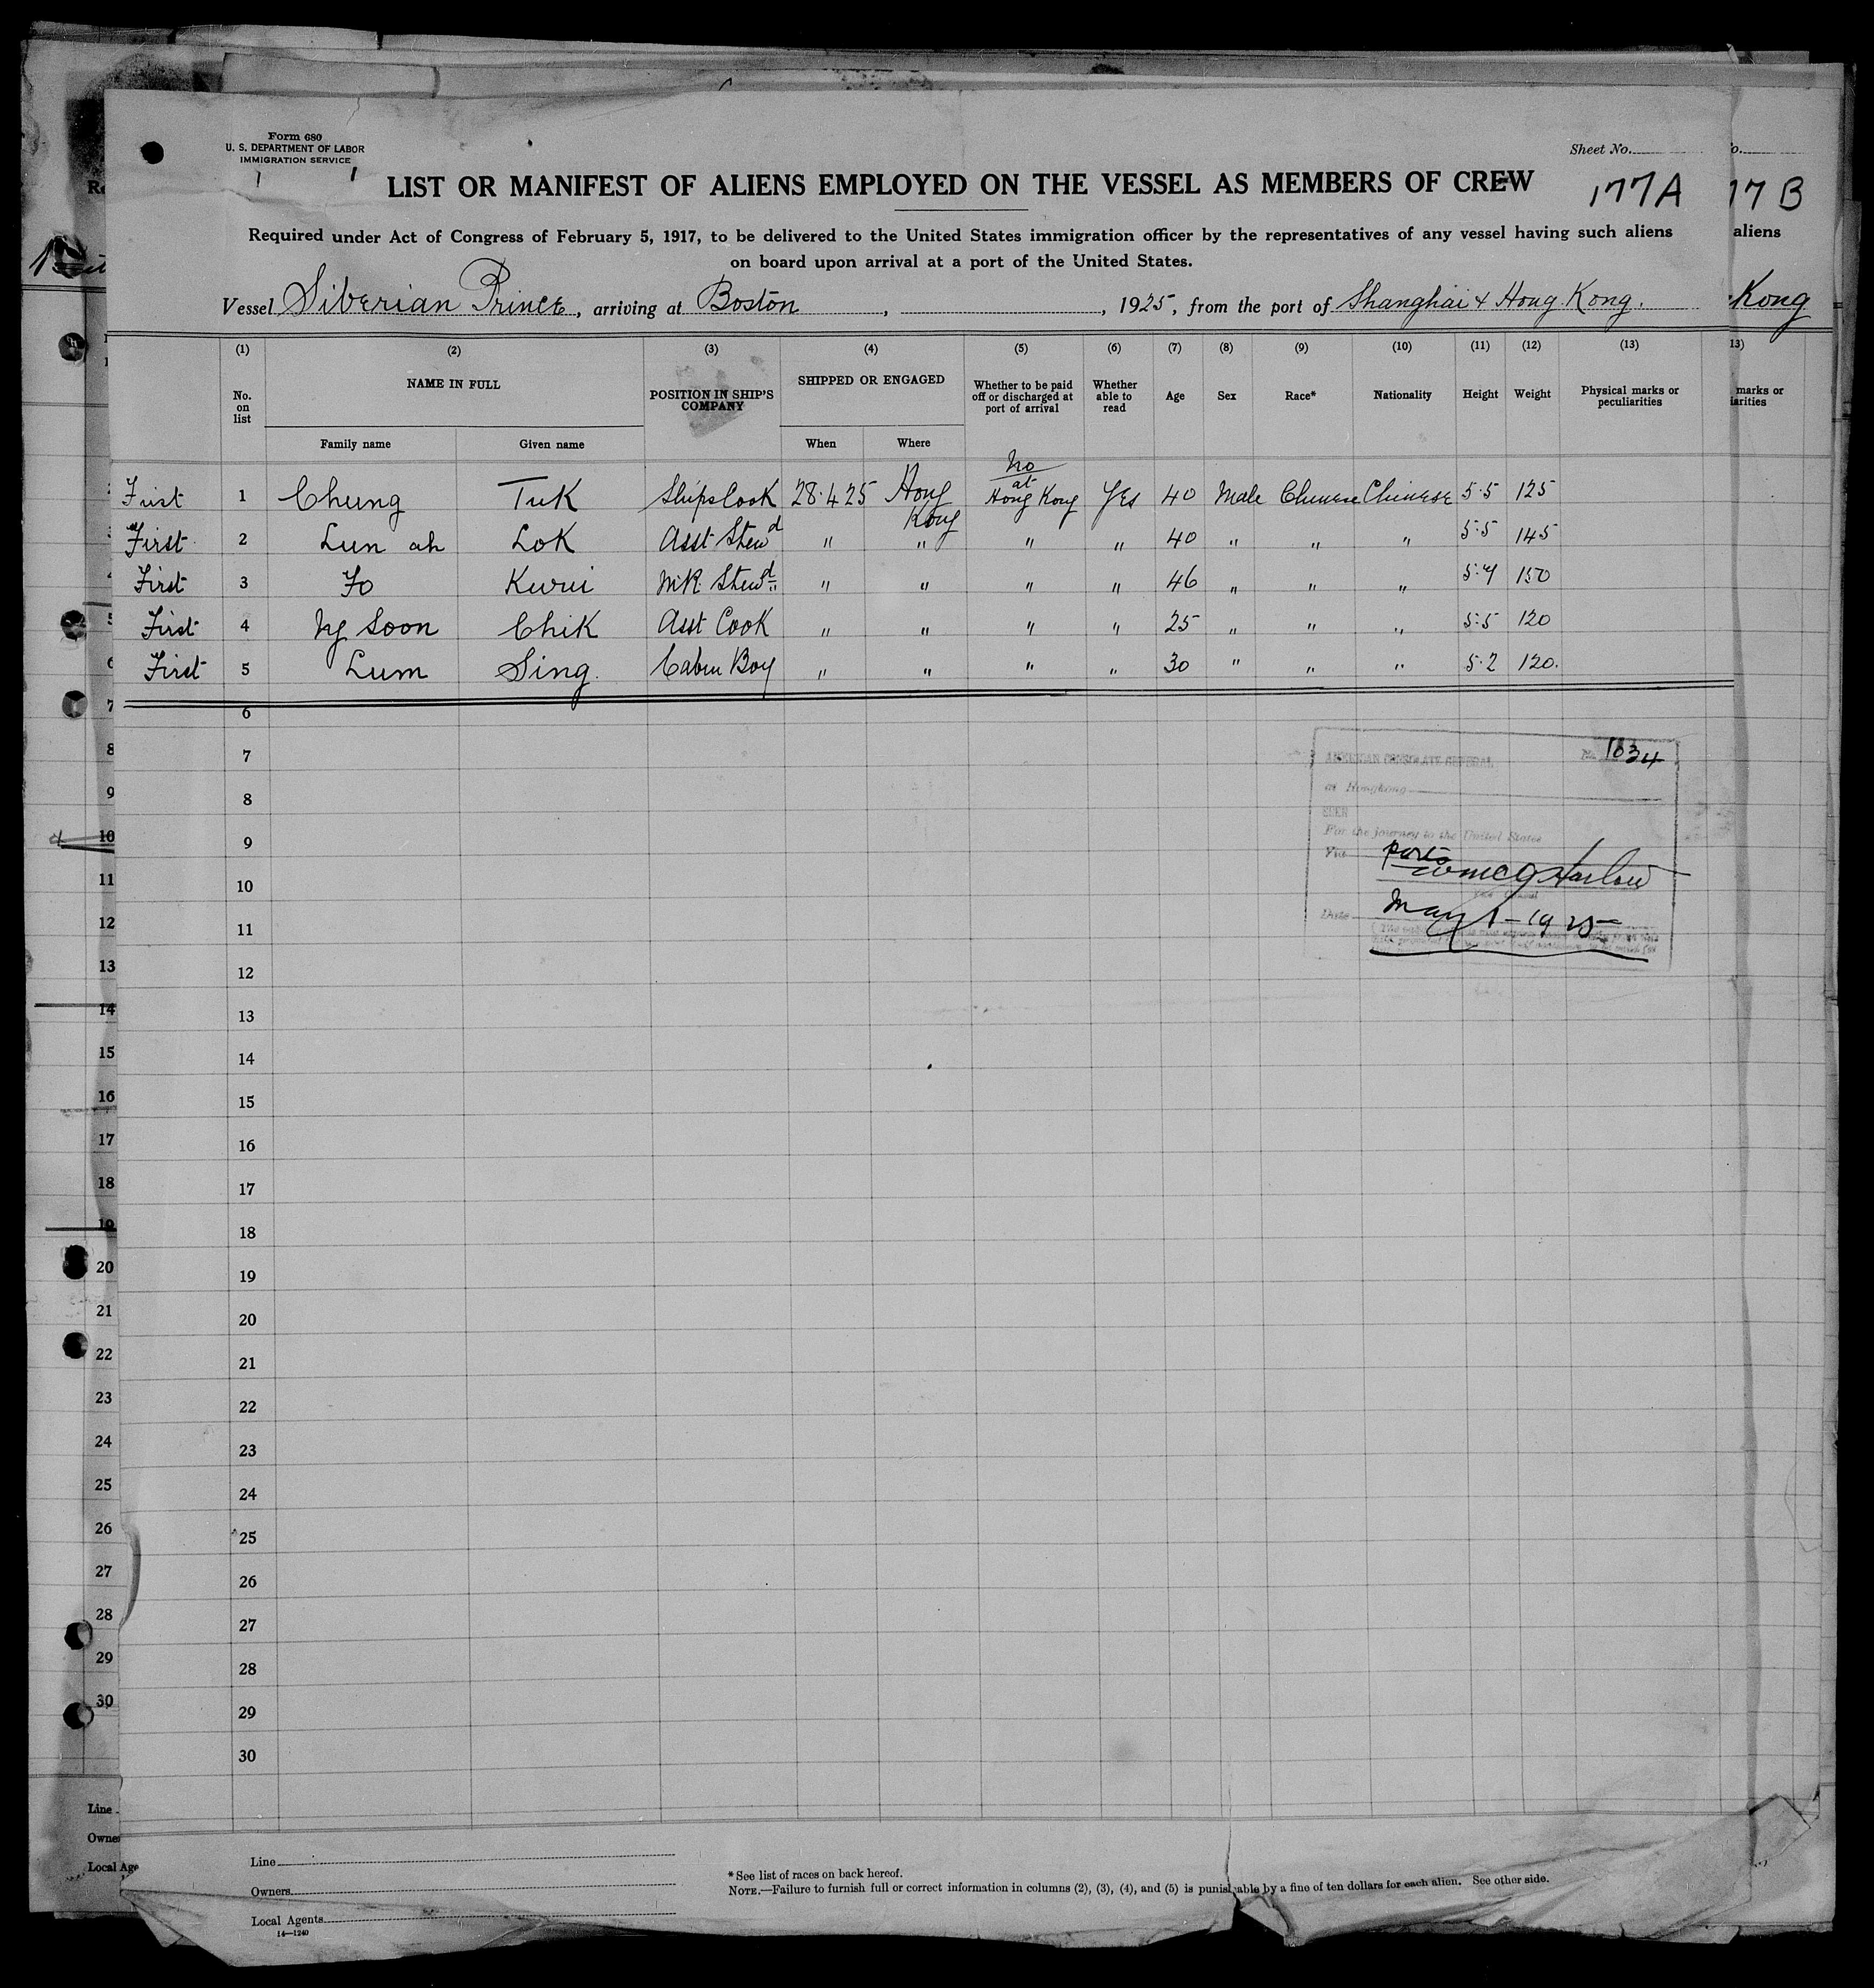 Form 680
U. S. DEPARTMENT OF LABOR
IMMIGRATION SERVICE
Sheet No.
LIST OR MANIFEST OF ALIENS EMPLOYED ON THE VESSEL AS MEMBERS OF CREW
177A
17 B
Required under Act of Congress of February 5, 1917, to be delivered to the United States immigration officer by the representatives of any vessel having such aliens
aliens
on board upon arrival at a port of the United States.
Vessel Siberian Prince, arriving at Boston , , 1925, from the port of Shanghai & Hong Kong.
Kong
(1) (2) (3) (4) (5) (6) (7) (8) (9) (10) (11) (12) (13)
13)
No. on list NAME IN FULL POSITION IN SHIP'S COMPANY SHIPPED OR ENGAGED Whether to be paid off or discharged at port of arrival Whether able to read Age Sex Race* Nationality Height Weight Physical marks or peculiarities
marks or
iarities
Family name Given name When Where
First 1 Chung Tuk Ships Cook 28.4.25 Hong Kong No at Hong Kong Yes 40 Male Chinese Chinese 5.5 125
First 2 Lun ah Lok Asst Stewd " " " " 40 " " " 5.5 145
First 3 Fo Kwui M.R. Stewd " " " " 46 " " " 150
First 4 Ng Soon Chik Asst Cook " " " " 25 " " " 5.5 120
First 5 Lum Sing. Cabin Boy " " " " 30 " " " 5.2 120.
6
7
8
9
10
11
12
13
14
15
16
17
18
19
20
21
22
23
24
25
26
27
28
29
30
AMERICAN CONSULATE GENERAL No. 1634
at Hongkong
SEEN
For the journey to the United States
Via ports
Date May 1 - 1925
7
8
9
10
11
12
13
14
15
16
17
18
19
20
21
22
23
24
25
26
27
28
29
30
Line
Owner
Local Age
Line
Owners
Local Agents
14—1240
* See list of races on back hereof.
NOTE.—Failure to furnish full or correct information in columns (2), (3), (4), and (5) is punishable by a fine of ten dollars for each alien. See other side.